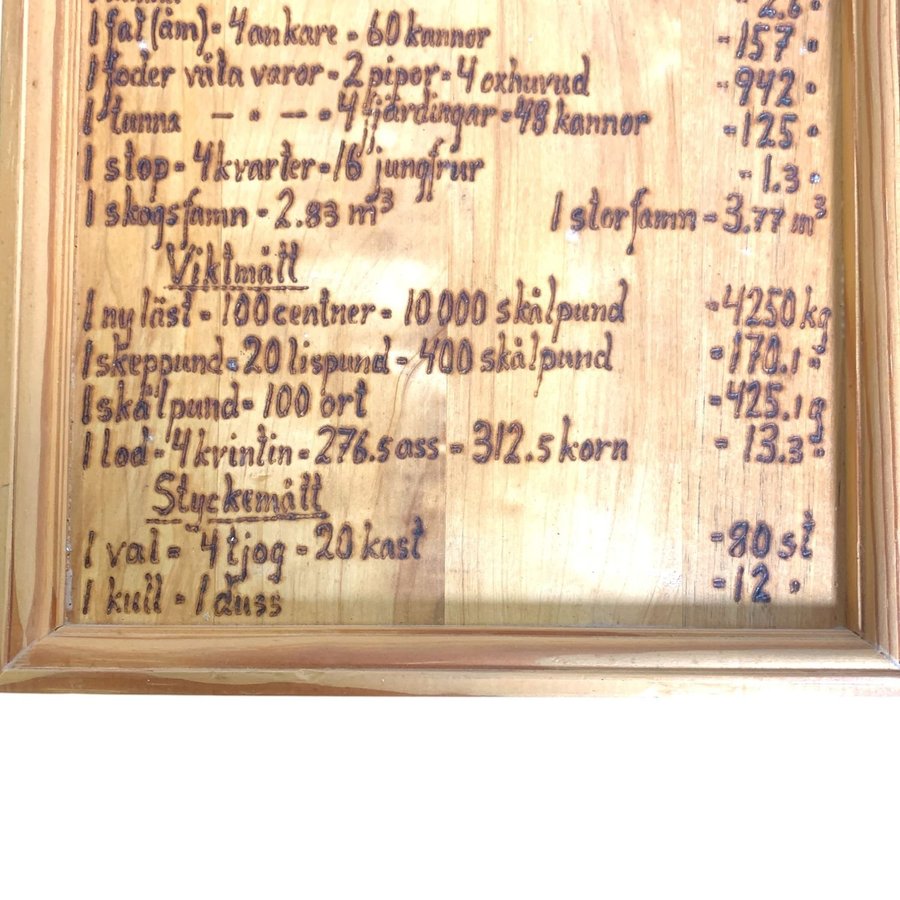 = 2.6 "
1 fat (åm) = 4 ankare = 60 kannor = 157 "
1 foder våta varor = 2 pipor = 4 oxhuvud = 942 "
1 tunna — " — = 4 fjärdingar = 48 kannor = 125 "
1 stop = 4 kvarter = 16 jungfrur = 1.3 "
1 skogsfamn = 2.83 m³ 1 storfamn = 3.77 m³
Viktmått
1 ny läst = 100 centner = 10 000 skålpund = 4250 kg
1 skeppund = 20 lispund = 400 skålpund = 170.1 "
1 skålpund = 100 ort = 425.1 g
1 lod = 4 kvintin = 276.5 ass = 312.5 korn = 13.3 "
Styckemått
1 val = 4 tjog = 20 kast = 80 st
1 kull = 1 duss = 12 "